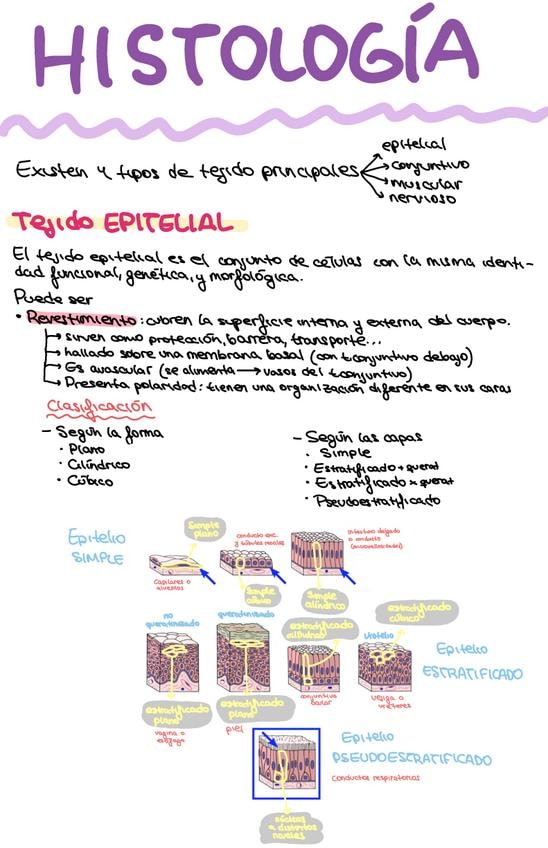 HISTOLOGÍA
Existen 4 tipos de tejido principales
epitelial
conjuntivo
muscular
nervioso
Tejido EPITELIAL
El tejido epitelial es el conjunto de células con la misma identi-
dad funcional, genética, y morfológica.
Puede ser
• Revestimiento: cubren la superficie interna y externa del cuerpo.
→ sirven como protección, barrera, transporte...
→ hallado sobre una membrana basal (con t.conjuntivo debajo)
→ Es avascular (se alimenta → vasos del t.conjuntivo)
→ Presenta polaridad: tienen una organización diferente en sus caras
Clasificación
- Según la forma
• Plano
• Cilíndrico
• Cúbico
- Según las capas
• Simple
• Estratificado + querat
• Estratificado × querat
• Pseudoestratificado
Epitelio
SIMPLE
Simple
plano
capilares o
alveolos
conducto exc.
y túbulos renales
Simple
cúbico
intestino delgado
o conducto
(microvellosidades)
Simple
cilíndrico
no
queratinizado
estratificado
plano
vagina o
esófago
queratinizado
estratificado
plano
piel
estratificado
cilíndrico
conjuntiva
ocular
estratificado
cúbico
Urotelio
vejiga o
uréteres
Epitelio
ESTRATIFICADO
Epitelio
PSEUDOESTRATIFICADO
conductos respiratorios
núcleos
a distintos
niveles